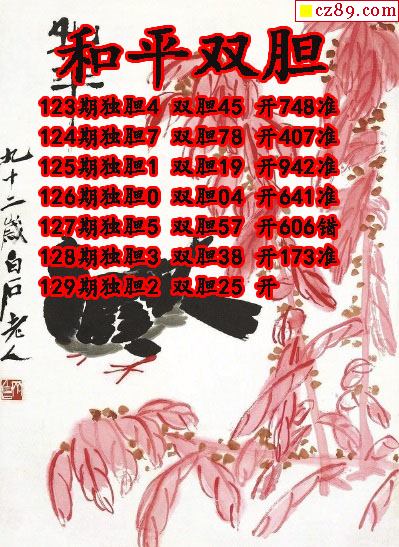 cz89.com
和平双胆
123期独胆4 双胆45 开748准
124期独胆7 双胆78 开407准
125期独胆1 双胆19 开942准
126期独胆0 双胆04 开641准
127期独胆5 双胆57 开606错
128期独胆3 双胆38 开173准
129期独胆2 双胆25 开
九十二歲白石老人